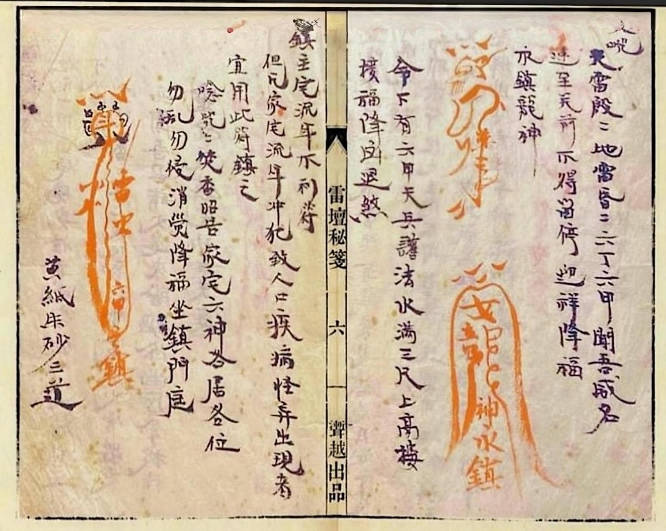 又咒
天雷殷二地雷昏二六丁六甲聞吾威名
速至天前不得留停迎祥降福
永鎮龍神
神水鎮
令下有六甲天兵護法水滿三尺上高樓
接福降凶退煞
雷壇秘箋
六
一
聾越出品
鎮主宅流年不利符
但凡家宅流年冲犯致人口疾病怪异出現者
宜用此符鎮之
唸咒二焚香昭告家宅六神各居各位
勿亂勿侵消灾降福坐鎮門庭
鎮
黄紙朱砂三道